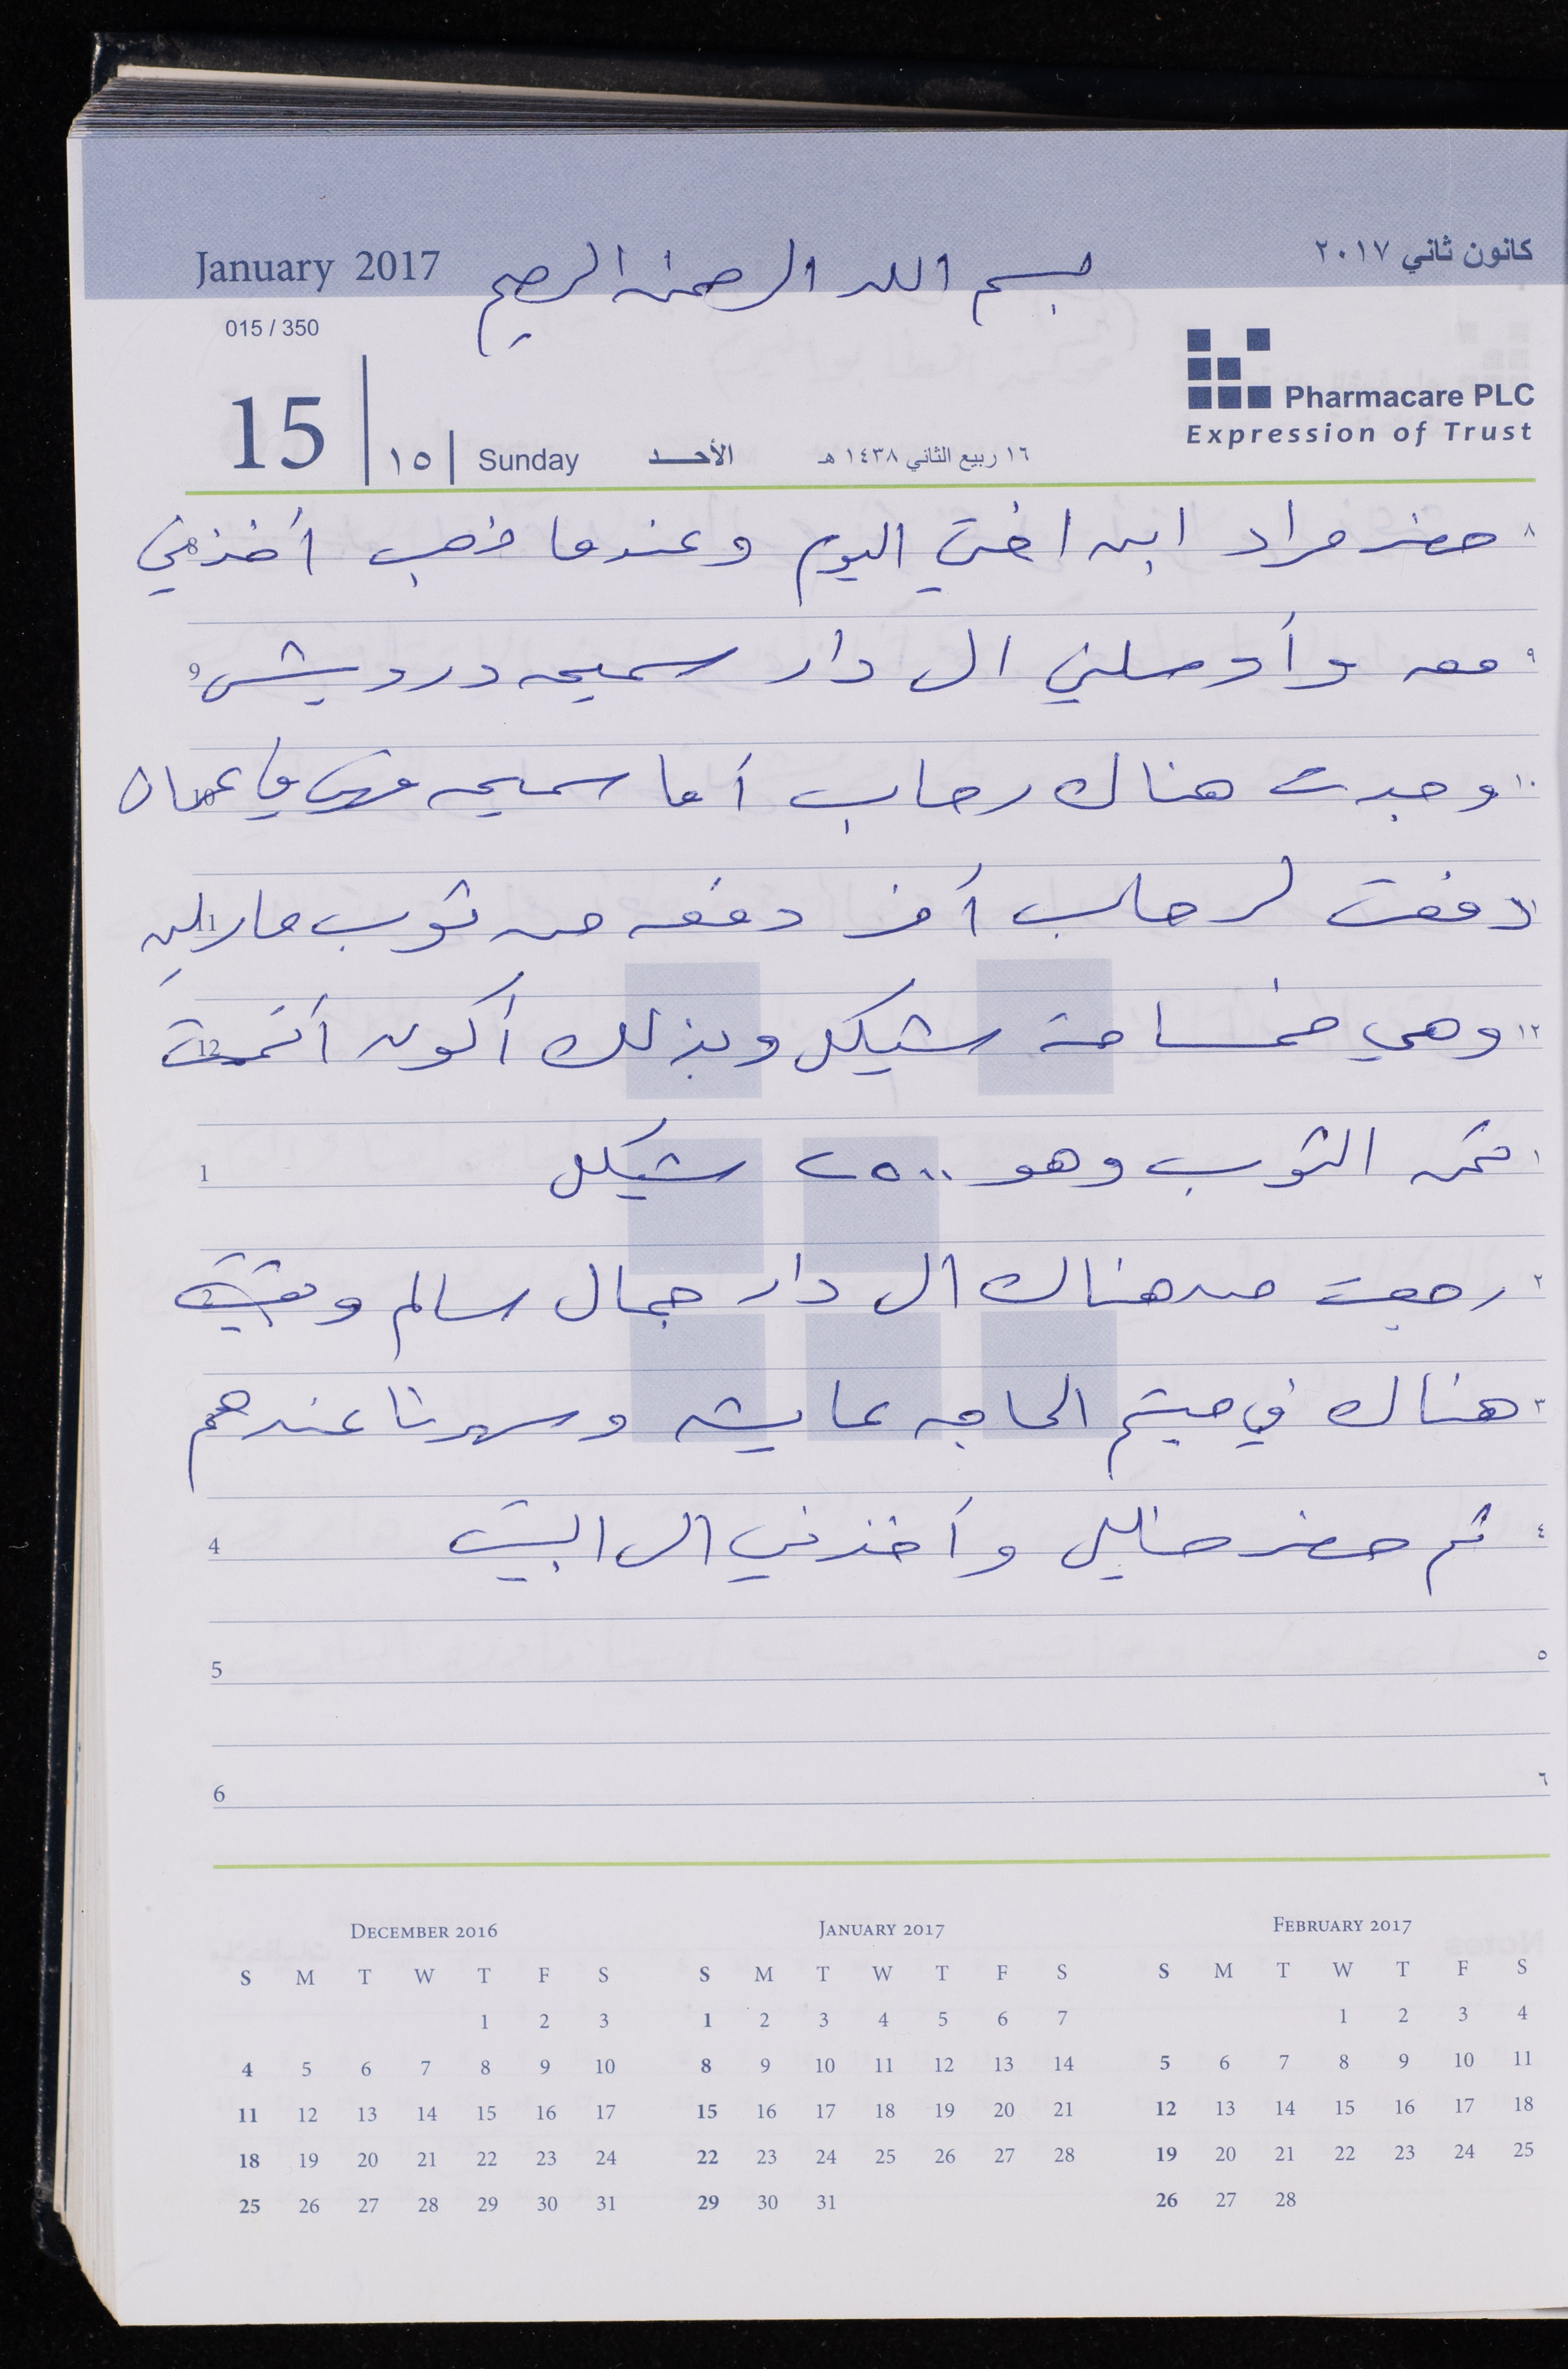 January 2017
بسم الله الرحمن الرحيم
كانون ثاني ٢٠١٧
015 / 350
Pharmacare PLC
Expression of Trust
15 ١٥ Sunday الأحـــد ١٦ ربيع الثاني ١٤٣٨ هـ
٨ حضر مراد ابن اختي اليوم وعندما ذهب أخذني
٩ معه وأوصلني الى دار سميحه درويش 9
١٠ وجدت هناك رحاب أما سميحه فهي في عمان
١١ دفعت لرحاب آخر دفعه من ثوب مارلين 11
١٢ وهي خمسامئة شيكل وبذلك أكون أتممت 12
١ ثمن الثوب وهو ٢٥٠٠ شيكل 1
٢ رجعت من هناك الى دار جمال سالم وبقيت 2
٣ هناك في ميتم الحاجه عايشه وسهرنا عندهم
٤ ثم حضر خليل وأخذني الى البيت 4
٥ 5
٦ 6
DECEMBER 2016
S M T W T F S
1 2 3
4 5 6 7 8 9 10
11 12 13 14 15 16 17
18 19 20 21 22 23 24
25 26 27 28 29 30 31
JANUARY 2017
S M T W T F S
1 2 3 4 5 6 7
8 9 10 11 12 13 14
15 16 17 18 19 20 21
22 23 24 25 26 27 28
29 30 31
FEBRUARY 2017
S M T W T F S
1 2 3 4
5 6 7 8 9 10 11
12 13 14 15 16 17 18
19 20 21 22 23 24 25
26 27 28